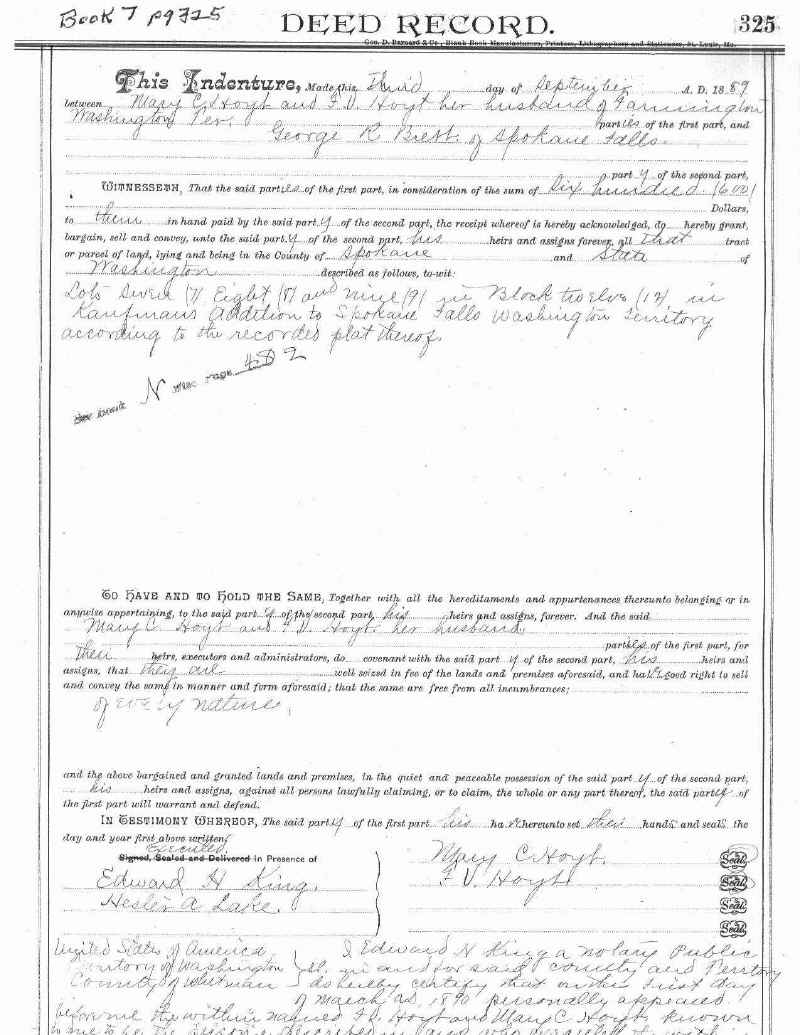 Book 7 pg 325
DEED RECORD. 325
Geo. D. Barnard & Co., Blank Book Manufacturers, Printers, Lithographers and Stationers, St. Louis, Mo.
This Indenture, Made this Third day of September A. D. 1889
between Mary C. Hoyt and F. V. Hoyt her husband of Farmington
Washington Ter. parties of the first part, and
George R Brett. of Spokane Falls.
part y of the second part,
WITNESSETH, That the said parties of the first part, in consideration of the sum of Six hundred (600)
Dollars,
to them in hand paid by the said part y of the second part, the receipt whereof is hereby acknowledged, do hereby grant,
bargain, sell and convey, unto the said part y of the second part, his heirs and assigns forever, all that tract
or parcel of land, lying and being in the County of Spokane and State of
Washington described as follows, to-wit:
Lots Seven (7) Eight (8) and nine (9) in Block twelve (12) in
Kaufmans Addition to Spokane Falls Washington Territory
according to the recorded plat thereof.
See book N page 482
TO HAVE AND TO HOLD THE SAME, Together with all the hereditaments and appurtenances thereunto belonging or in
anywise appertaining, to the said part y of the second part, his heirs and assigns, forever. And the said
Mary C. Hoyt and F. V. Hoyt. her husband
parties of the first part, for
their heirs, executors and administrators, do covenant with the said part y of the second part, his heirs and
assigns, that they are well seized in fee of the lands and premises aforesaid, and have good right to sell
and convey the same in manner and form aforesaid; that the same are free from all incumbrances;
of every nature,
and the above bargained and granted lands and premises, in the quiet and peaceable possession of the said part y of the second part,
his heirs and assigns, against all persons lawfully claiming, or to claim, the whole or any part thereof, the said part y of
the first part will warrant and defend.
IN TESTIMONY WHEREOF, The said part y of the first part his ha hereunto set their hands and seals the
day and year first above written.
Executed
Signed, Sealed and Delivered in Presence of
Mary C. Hoyt. Seal
Edward H King. F. V. Hoyt Seal
Hesler A Lake. Seal
Seal
United States of America
Territory of Washington
County of Whitman
ss. I Edward H King a notary Public
in and for said County and Territory
do hereby certify that on this first day
of March A.D. 1890 personally appeared
before me the within named F. V. Hoyt and Mary C Hoyt known
to me to be the